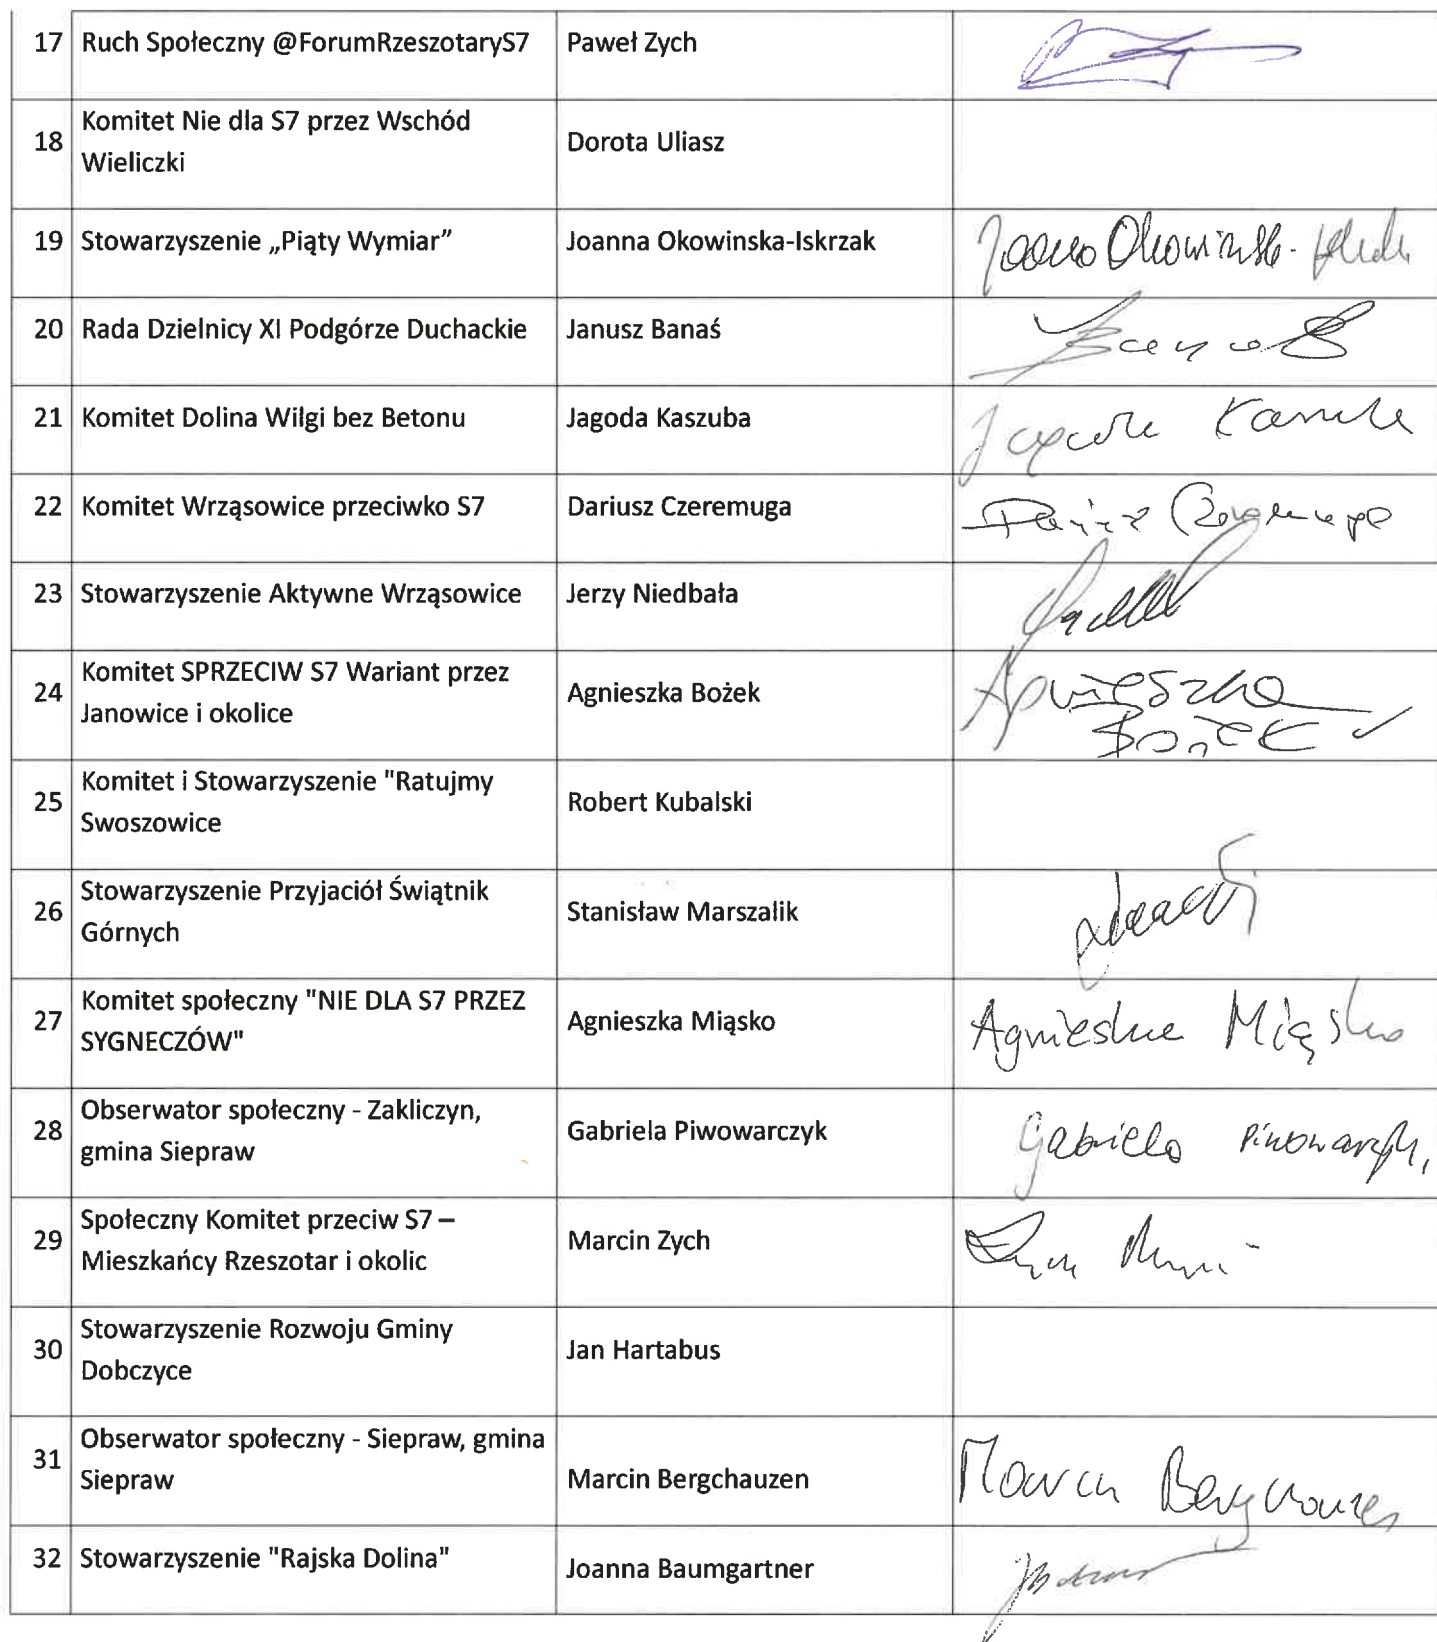 17 Ruch Społeczny @ForumRzeszotaryS7 Paweł Zych
18 Komitet Nie dla S7 przez Wschód
Wieliczki Dorota Uliasz
19 Stowarzyszenie „Piąty Wymiar” Joanna Okowinska-Iskrzak
20 Rada Dzielnicy XI Podgórze Duchackie Janusz Banaś
21 Komitet Dolina Wilgi bez Betonu Jagoda Kaszuba
22 Komitet Wrząsowice przeciwko S7 Dariusz Czeremuga
23 Stowarzyszenie Aktywne Wrząsowice Jerzy Niedbała
24 Komitet SPRZECIW S7 Wariant przez
Janowice i okolice Agnieszka Bożek Agnieszka
Bożek
25 Komitet i Stowarzyszenie "Ratujmy
Swoszowice Robert Kubalski
26 Stowarzyszenie Przyjaciół Świątnik
Górnych Stanisław Marszalik
27 Komitet społeczny "NIE DLA S7 PRZEZ
SYGNECZÓW" Agnieszka Miąsko Agnieszka Miąsko
28 Obserwator społeczny - Zakliczyn,
gmina Siepraw Gabriela Piwowarczyk Gabriela Piwowarczyk
29 Społeczny Komitet przeciw S7 –
Mieszkańcy Rzeszotar i okolic Marcin Zych
30 Stowarzyszenie Rozwoju Gminy
Dobczyce Jan Hartabus
31 Obserwator społeczny - Siepraw, gmina
Siepraw Marcin Bergchauzen Marcin Bergchauzen
32 Stowarzyszenie "Rajska Dolina" Joanna Baumgartner